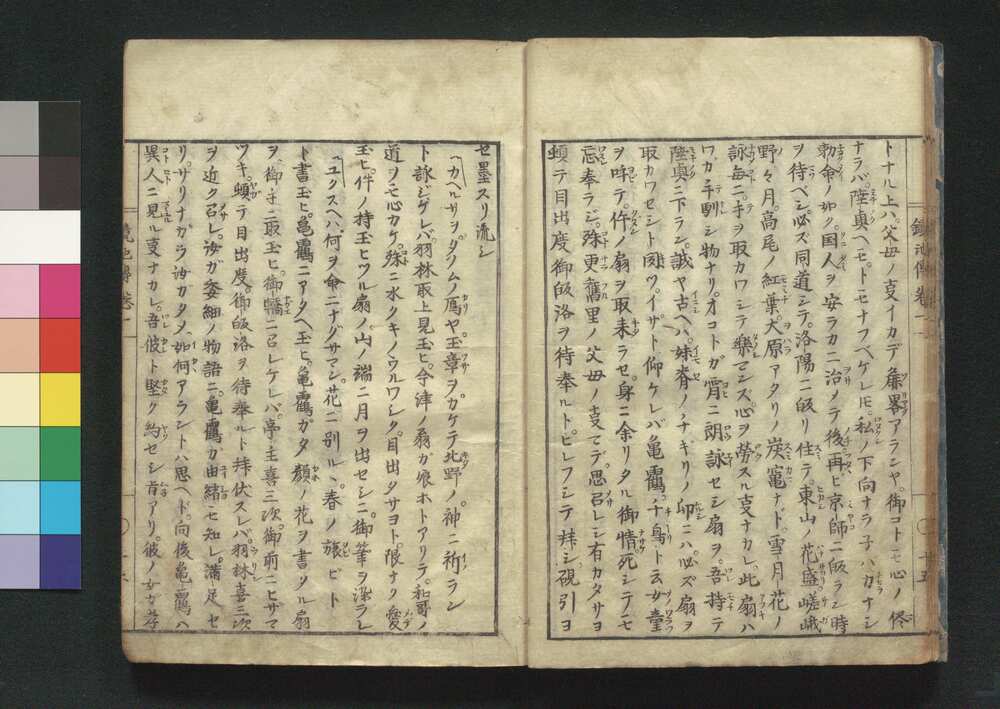 トナル上ハ父母ノ支イカデ麁畧アランヤ御コトモ心ノ侭
ナラバ陸奥ヘモトモナフベケレ𪜈私ノ下向ナラ子ハカナシ
勅命ノ如ク国人ヲ安ラカニ治メテ後再ヒ京師ニ皈ラン時
ヲ待ベシ必ズ同道シテ洛陽ニ皈リ住テ東山ノ花盛嵯峨
野ノ月高尾ノ紅葉大原アタリノ炭竃ナド雪月花ノ
詠毎ニ手ヲ取カワシテ樂マンズ心ヲ勞スル支ナカレ此扇ハ
ワカ手馴シ物ナリオコトガ宵ニ朗詠セシ扇ヲ吾持テ
陸奥ニ下ラン誠ヤ古ヘハ妹脊ノチギリノ印ニハ必ズ扇ヲ
取カワセシト聞ツイザト仰ケレバ亀鶴千鳥ト云女童
ヲ呼テ件ノ扇ヲ取来ラセ身ニ余リタル御情死シテモ
忘奉ラジ殊更舊里ノ父母ノ支マデ思召レシ有カタサヨ
頓テ目出度御皈洛ヲ待奉ルトヒレフシテ拜シ硯引ヨ
セ墨スリ流シ
カヘルサヲタノムノ雁ヤ玉章ヲカケテ北野ノ神ニ祈ラン
ト詠ジゲレバ羽林取上見玉ヒ今津ノ翁ガ娘ホトアリテ和哥ノ
道ヲモ心カケ殊ニ水クキノウルワシク目出タサヨト限ナク愛
玉ヒ件ノ持玉ヒツル扇ノ山ノ端ニ月ヲ出セシニ御筆ヲ染ラレ
ユクスヘハ何ヲ命ニナグサマン花ニ別ルヽ春ノ旅ビト
ト書玉ヒ亀鶴ニアタヘ玉ヒ亀鶴ガタ顔ノ花ヲ書タル扇
ヲ御手ニ取玉ヒ御幡ニ召レケレバ亭主喜三次御前ニヒザマ
ツキ頓テ目出度御皈洛ヲ待奉ルト拜伏スレバ羽林喜三次
ヲ近ク召レ汝ガ委細ノ物語ニ亀鶴カ由緒モ知レ満足セ
リサリナガラ汝カタメ如何アラントハ思ヘド向後亀鶴ハ
異人ニ見ル支ナカレ吾彼ト堅ク約セシ旨アリ彼ノ女ガ孝